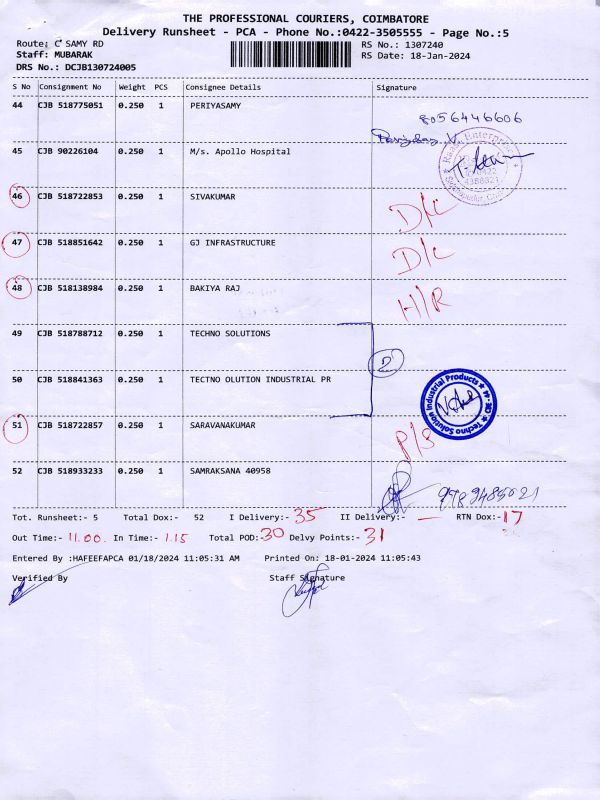 THE PROFESSIONAL COURIERS, COIMBATORE
Delivery Runsheet - PCA - Phone No.:0422-3505555 - Page No.:5
Route; C' SAMY RD RS No.: 1307240
Staff: MUBARAK RS Date: 18-Jan-2024
DRS No.: DCJB130724005
S No Consignment No Weight PCS Consignee Details Signature
44 CJB 518775051 0.250 1 PERIYASAMY
8056446606
45 CJB 90226104 0.250 1 M/s. Apollo Hospital
46 CJB 518722853 0.250 1 SIVAKUMAR D/L
47 CJB 518851642 0.250 1 GJ INFRASTRUCTURE D/L
48 CJB 518138984 0.250 1 BAKIYA RAJ H/R
49 CJB 518788712 0.250 1 TECHNO SOLUTIONS
2
50 CJB 518841363 0.250 1 TECTNO OLUTION INDUSTRIAL PR
Techno Solution Industrial Products
51 CJB 518722857 0.250 1 SARAVANAKUMAR P/S
52 CJB 518933233 0.250 1 SAMRAKSANA 40958
9789485021
Tot. Runsheet:- 5 Total Dox:- 52 I Delivery:- 35 II Delivery:- — RTN Dox:- 17
Out Time:- 11.00. In Time:- 1.15 Total POD:- 30 Delvy Points:- 31
Entered By :HAFEEFAPCA 01/18/2024 11:05:31 AM Printed On: 18-01-2024 11:05:43
Verified By Staff Signature